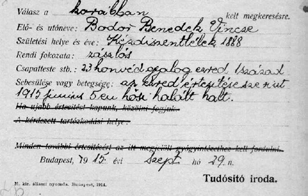 Válasz a korábban kelt megkeresésre.
Elő- és utóneve: Bodor Benedek Vincze
Születési helye és éve: Kézdiszentlélek 1888
Rendi fokozata: zászlós
Csapatteste stb.: 23 honvéd gyalog ezred 1 század
Sebesülése vagy betegsége: az ezred értesítése szerint
1915 junius 5 én hősi halált halt.
Ha ujabb értesítést kapunk, közölni fogjuk.
A kérdezett tartózkodási helye:
Minden további értesítést az itt megjelölt
Budapest, 1915. évi Szept hó 29.n.
Tudósitó iroda.
M. kir. állami nyomda. Budapest, 1914.